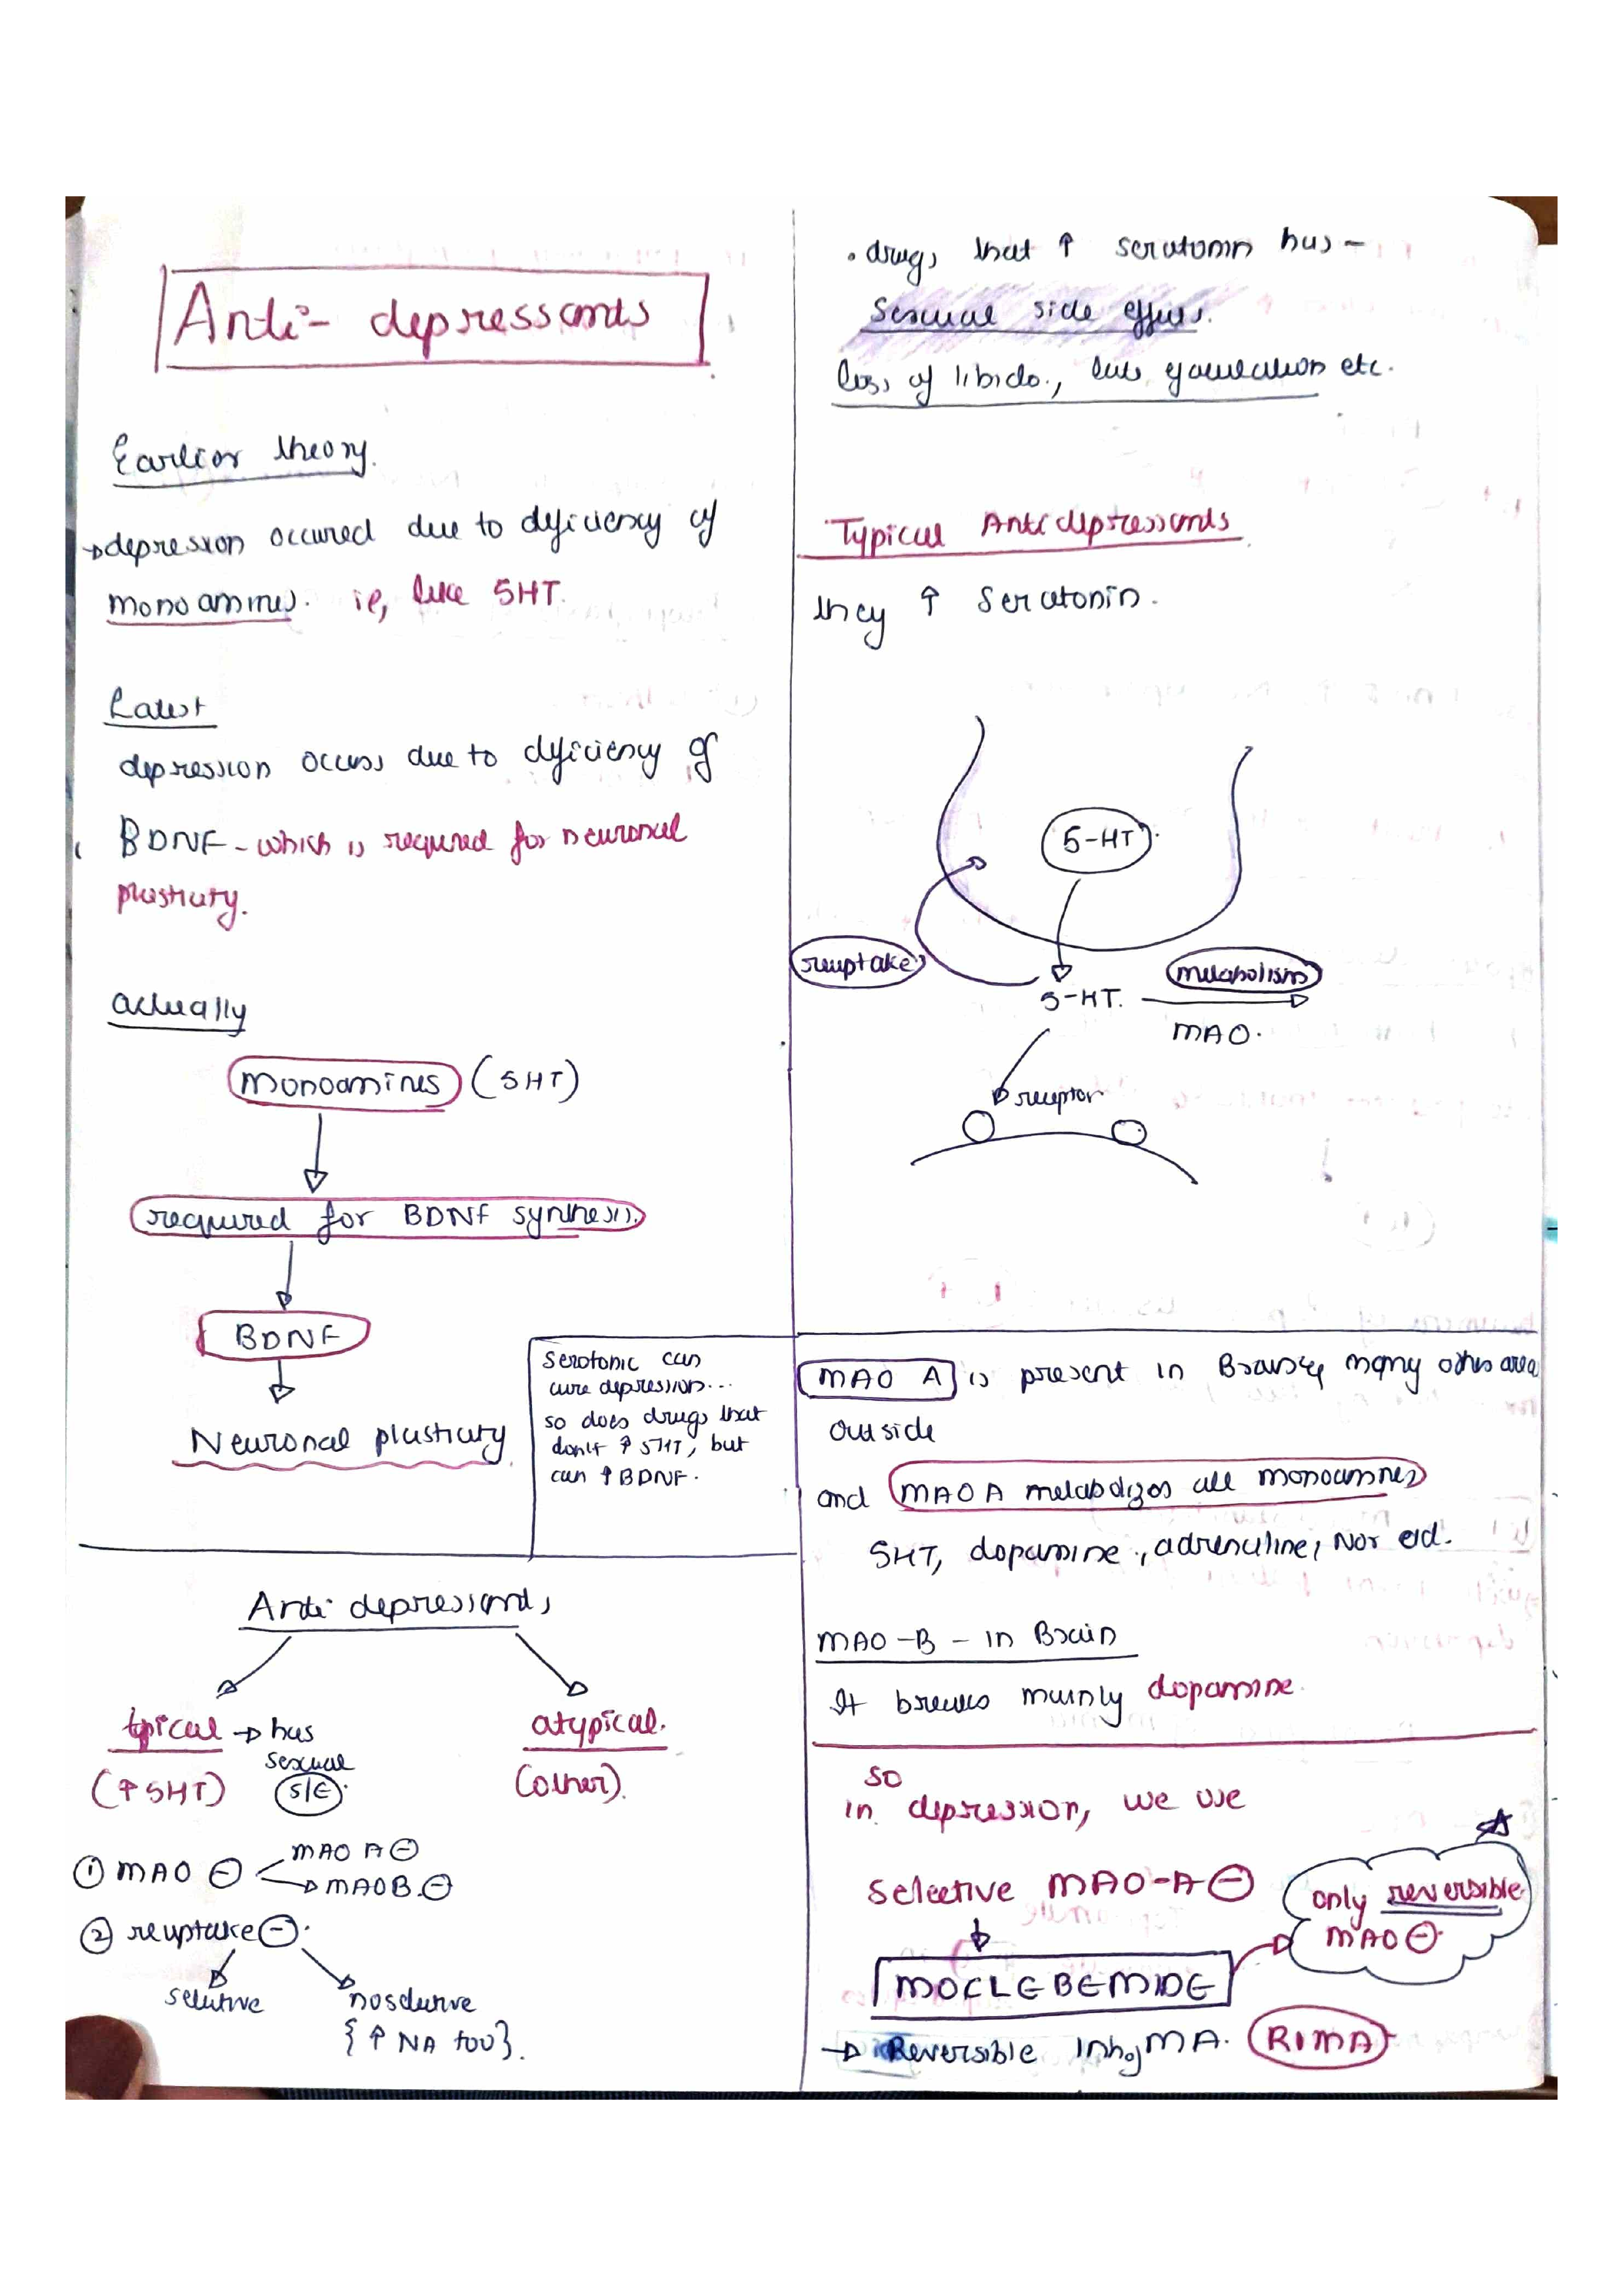 Anti - depressants
Earlier theory.
depression occured due to deficiency of
monoamines. ie, like 5HT.
Latest
depression occurs due to deficiency of
BDNF - which is required for neuronal
plasticity.
actually
monoamines (5HT)
required for BDNF synthesis.
BDNF
Neuronal plasticity.
Serotonic can
cure depression...
so does drugs that
don't ↑ 5HT, but
can ↑ BDNF.
Anti depressants
typical → has
sexual
S/E
(↑ 5HT)
atypical.
(other).
① MAO ⊖
MAO A ⊖
MAO B. ⊖
② reuptake ⊖.
selective
noselective
{↑ NA too}.
• drugs that ↑ seratonin has -
Sexual side effects.
loss of libido., late ejaculation etc.
Typical Antidepressants
they ↑ Seratonin.
5-HT
reuptake
5-HT.
metabolism
MAO.
receptor
MAO A is present in Brain & many other area
outside
and MAO A metabolizes all monoamines
5HT, dopamine, adrenaline, Nor ad.
MAO-B - in Brain
It breaks mainly dopamine.
so
in depression, we use
Selective MAO-A ⊖
only reversible
MAO ⊖.
MOCLEBEMIDE
→ Reversible Inh of MA. RIMA